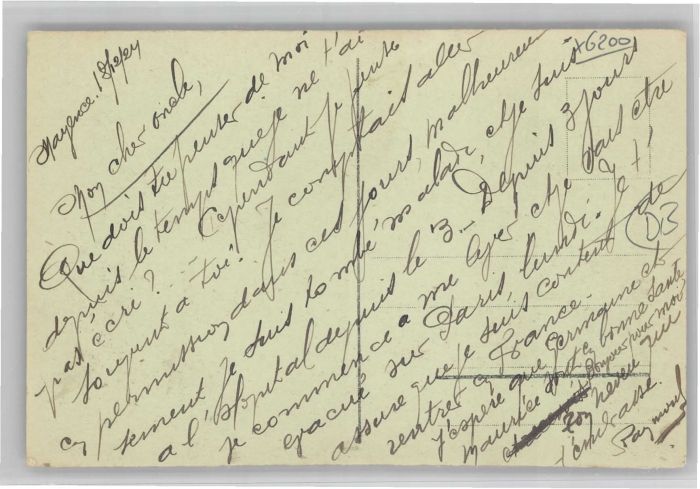 Mayence. 18/2/24
Mon cher oncle,
Que dois tu penser de moi
depuis le temps que je ne t'ai
pas écri? Cependant je pense
souvent a toi! Je comptais aller
en permission dans ces jours, malheureu
sement je suis tombé malade, et je suis
a l'Hopital depuis le 3 – Depuis 3 jours
je commence a me lever et je vais etre
evacué sur Paris, lundi. Je t'
assure que je suis content de
rentrer en France.
J'espère que Germaine et
Maurice sont en bonne Santé
Bonjour pour moi
ton neveu qui
t'embrasse.
Raymond
+6200
D3